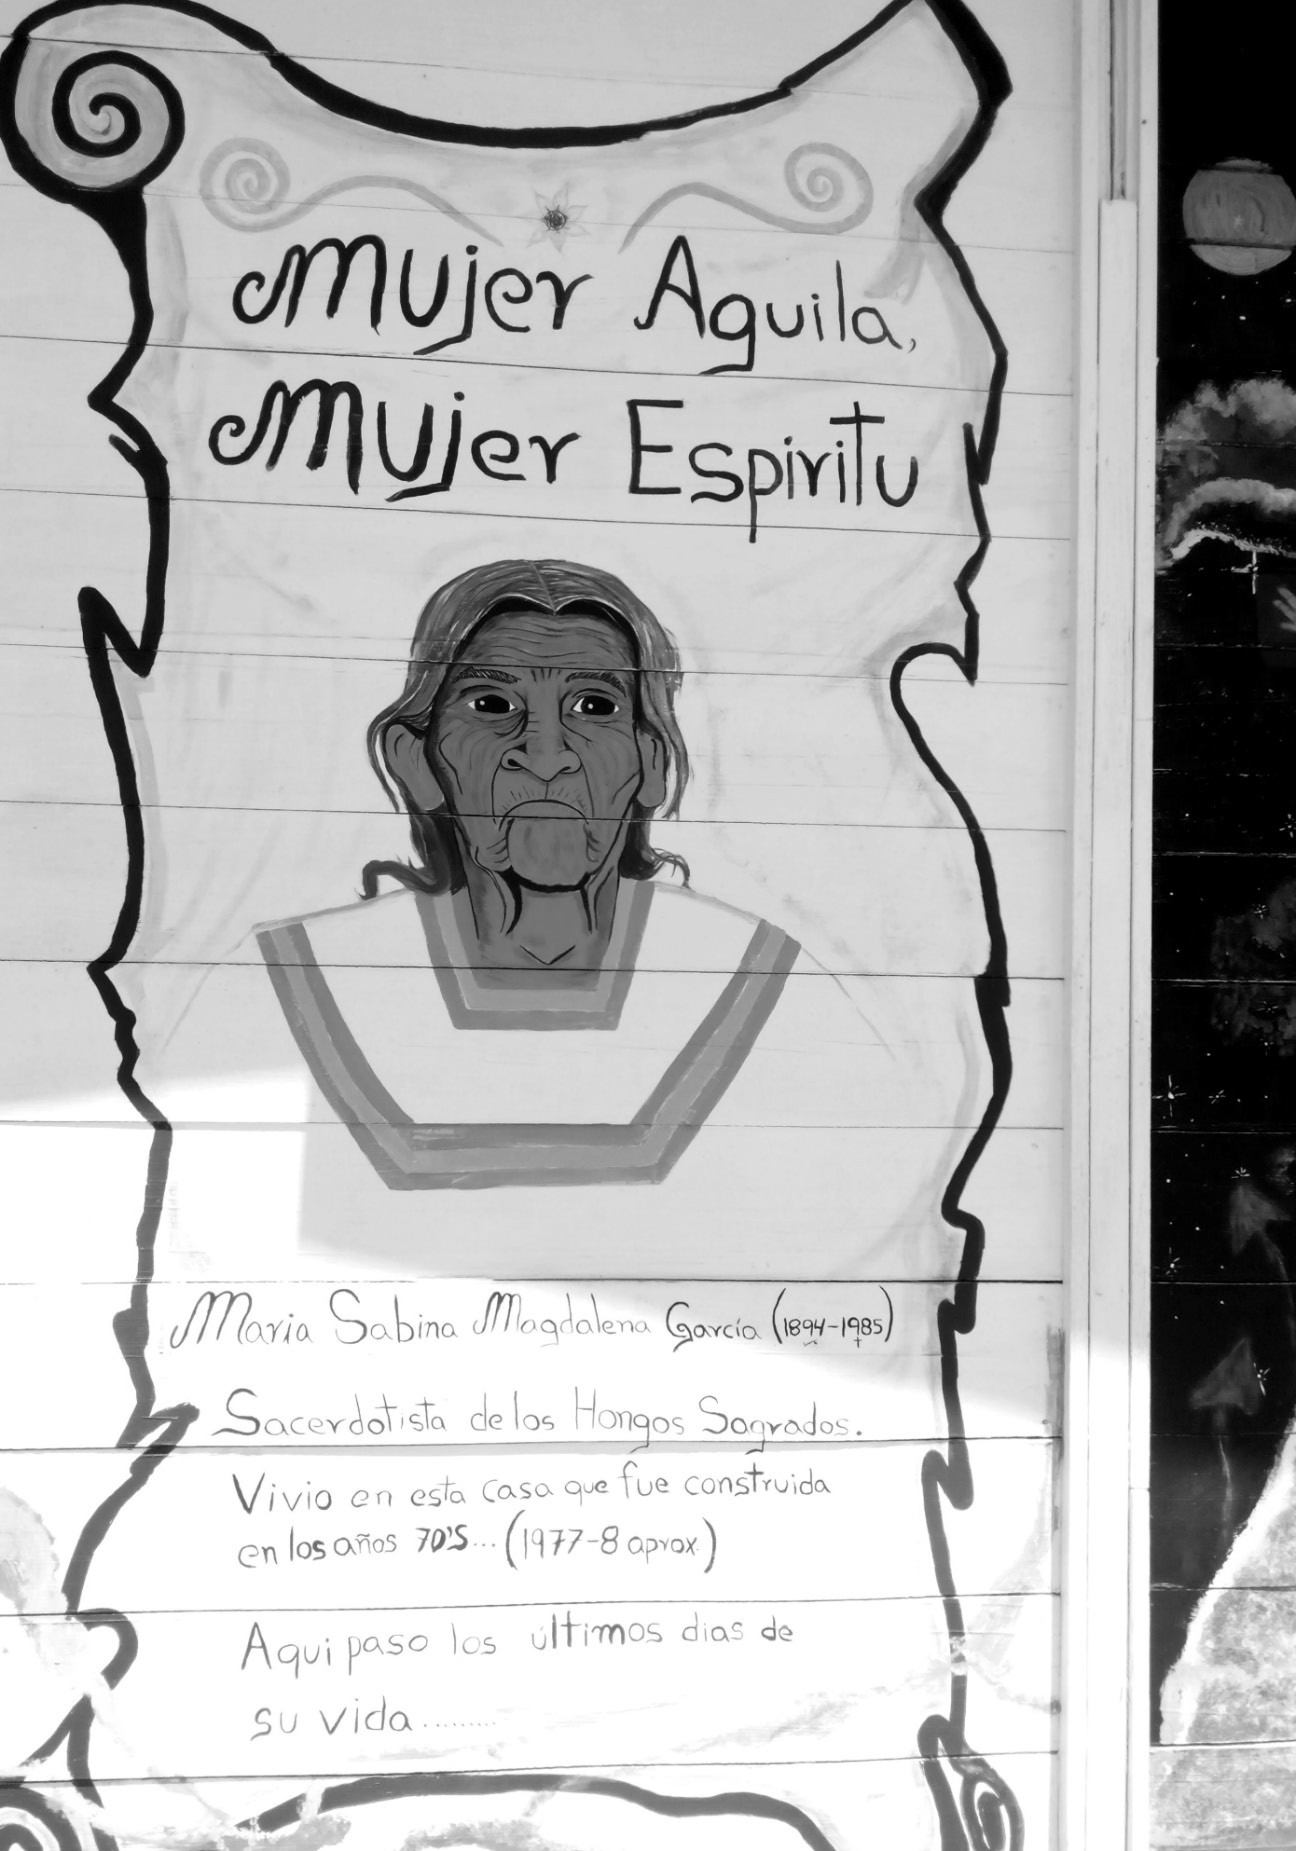 Mujer Aguila,
Mujer Espiritu
Maria Sabina Magdalena García (1894-1985)
Sacerdotista de los Hongos Sagrados.
Vivio en esta casa que fue construida
en los años 70'S... (1977-8 aprox.)
Aqui paso los últimos dias de
su vida.........